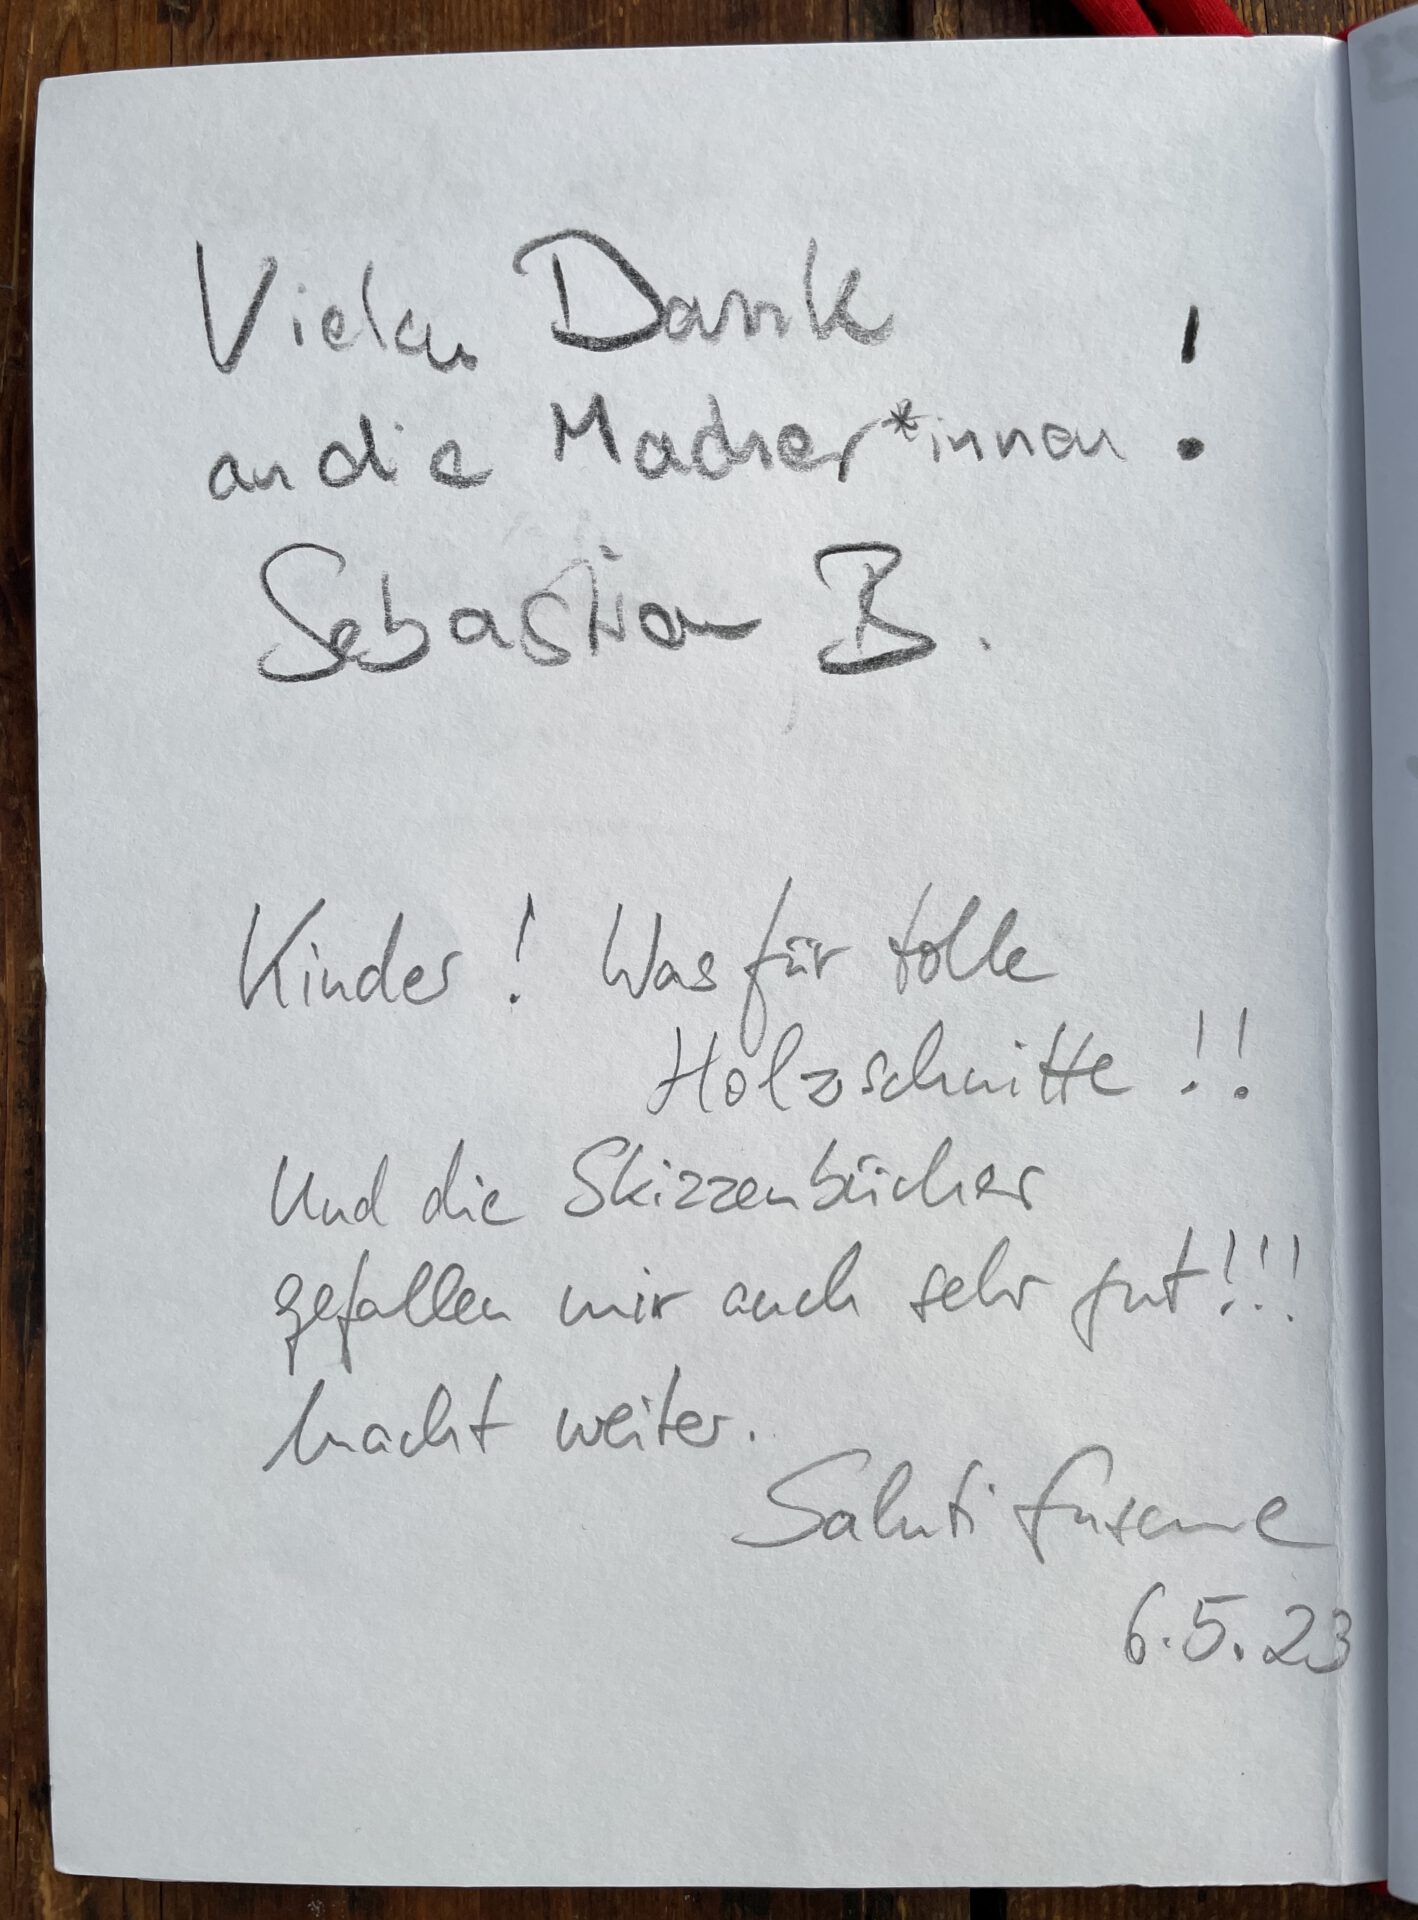 Vielen Dank
an die Macher*innen!
Sebastian B.
Kinder! Was für tolle
Holzschnitte!!
Und die Skizzenbücher
gefallen mir auch sehr gut!!!
Macht weiter.
Saluti
6.5.23